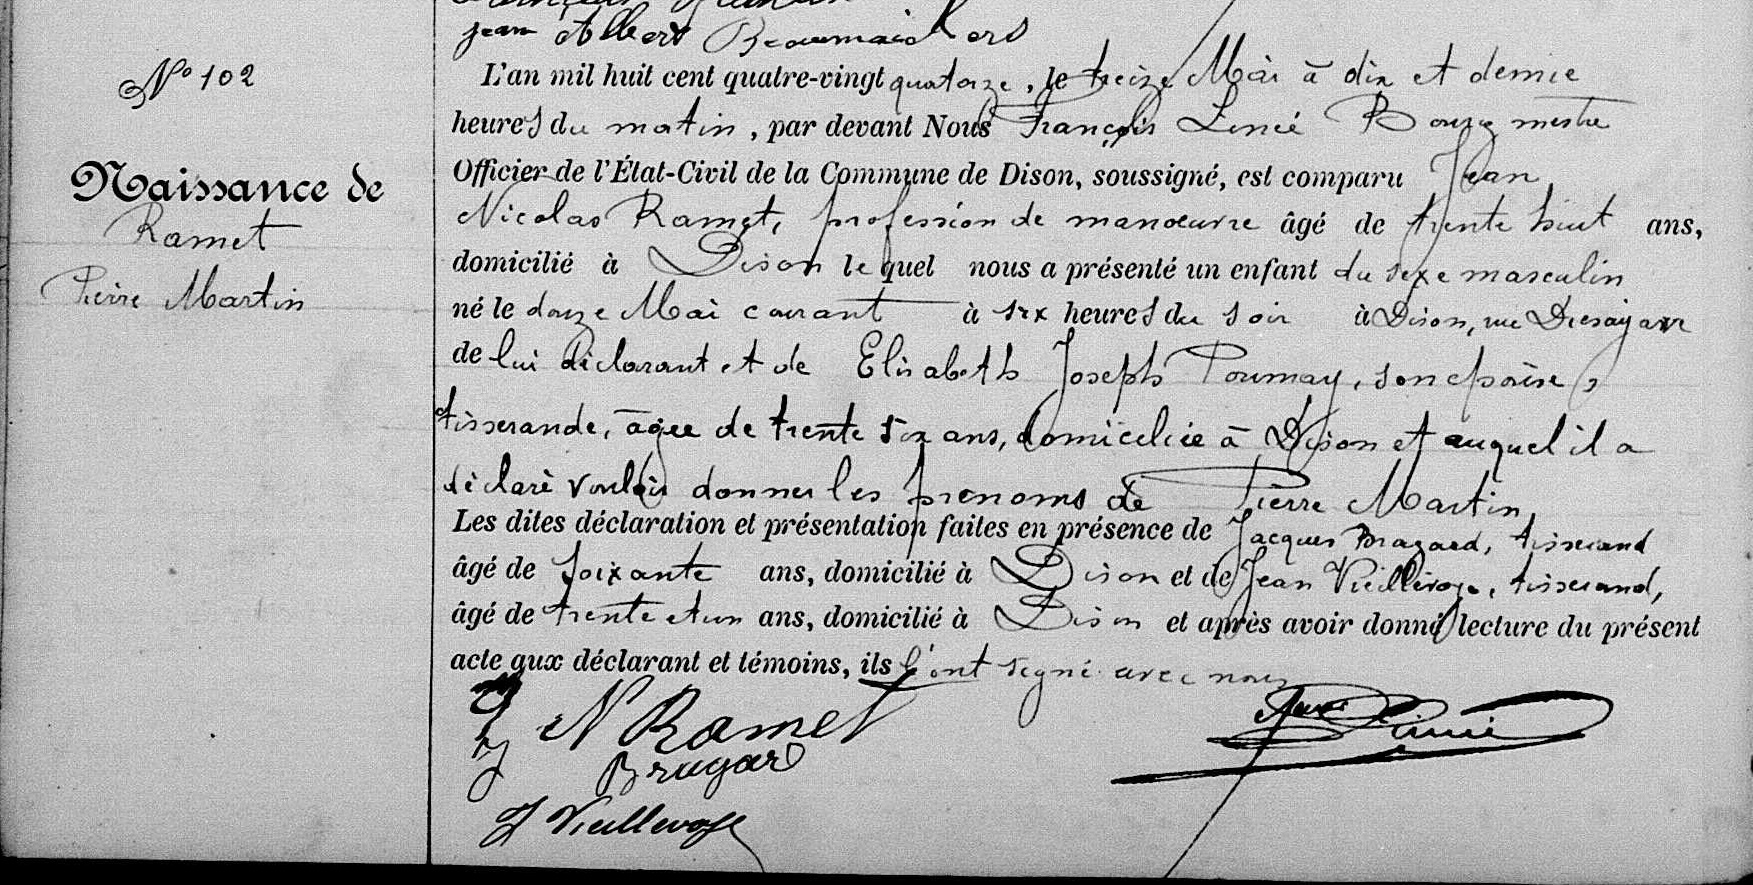 jean Albert
N° 102
Naissance de
Ramet
Pierre Martin
L'an mil huit cent quatre-vingt quatorze, le treize Mai à dix et demie
heures du matin, par devant Nous François Lincé Bourgmestre
Officier de l'État-Civil de la Commune de Dison, soussigné, est comparu Jean
Nicolas Ramet, profession de manœuvre âgé de trente huit ans,
domicilié à Dison lequel nous a présenté un enfant du sexe masculin
né le douze Mai courant à six heures du soir à Dison, rue
de lui déclarant et de Elisabeth Joseph Pournay, son épouse,
tisserande, âgée de trente six ans, domiciliée à Dison et auquel il a
déclaré vouloir donner les prenoms de Pierre Martin,
Les dites déclaration et présentation faites en présence de Jacques Bragard, tisserand
âgé de soixante ans, domicilié à Dison et de Jean Vieillevoye, tisserand,
âgé de trente et un ans, domicilié à Dison et après avoir donné lecture du présent
acte aux déclarant et témoins, ils l'ont signé avec nous
J N Ramet
J Bragard
J Vieillevoye